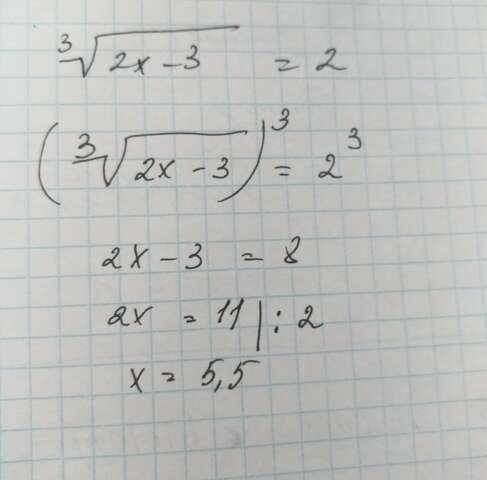 ∛(2x − 3) = 2
(∛(2x − 3))³ = 2³
2x − 3 = 8
2x = 11 | : 2
x = 5,5